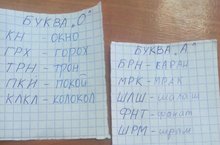 БУКВА „О"
КН - ОКНО
ГРХ - ГОРОХ
ТРН - ТРОН
ПКЙ - ПОКОЙ
КЛКЛ - КОЛОКОЛ
БУКВА „А"
БРН -
МРК - МРАК
ШЛШ - шалаш
ФНТ - фанат
ШРМ - шрам